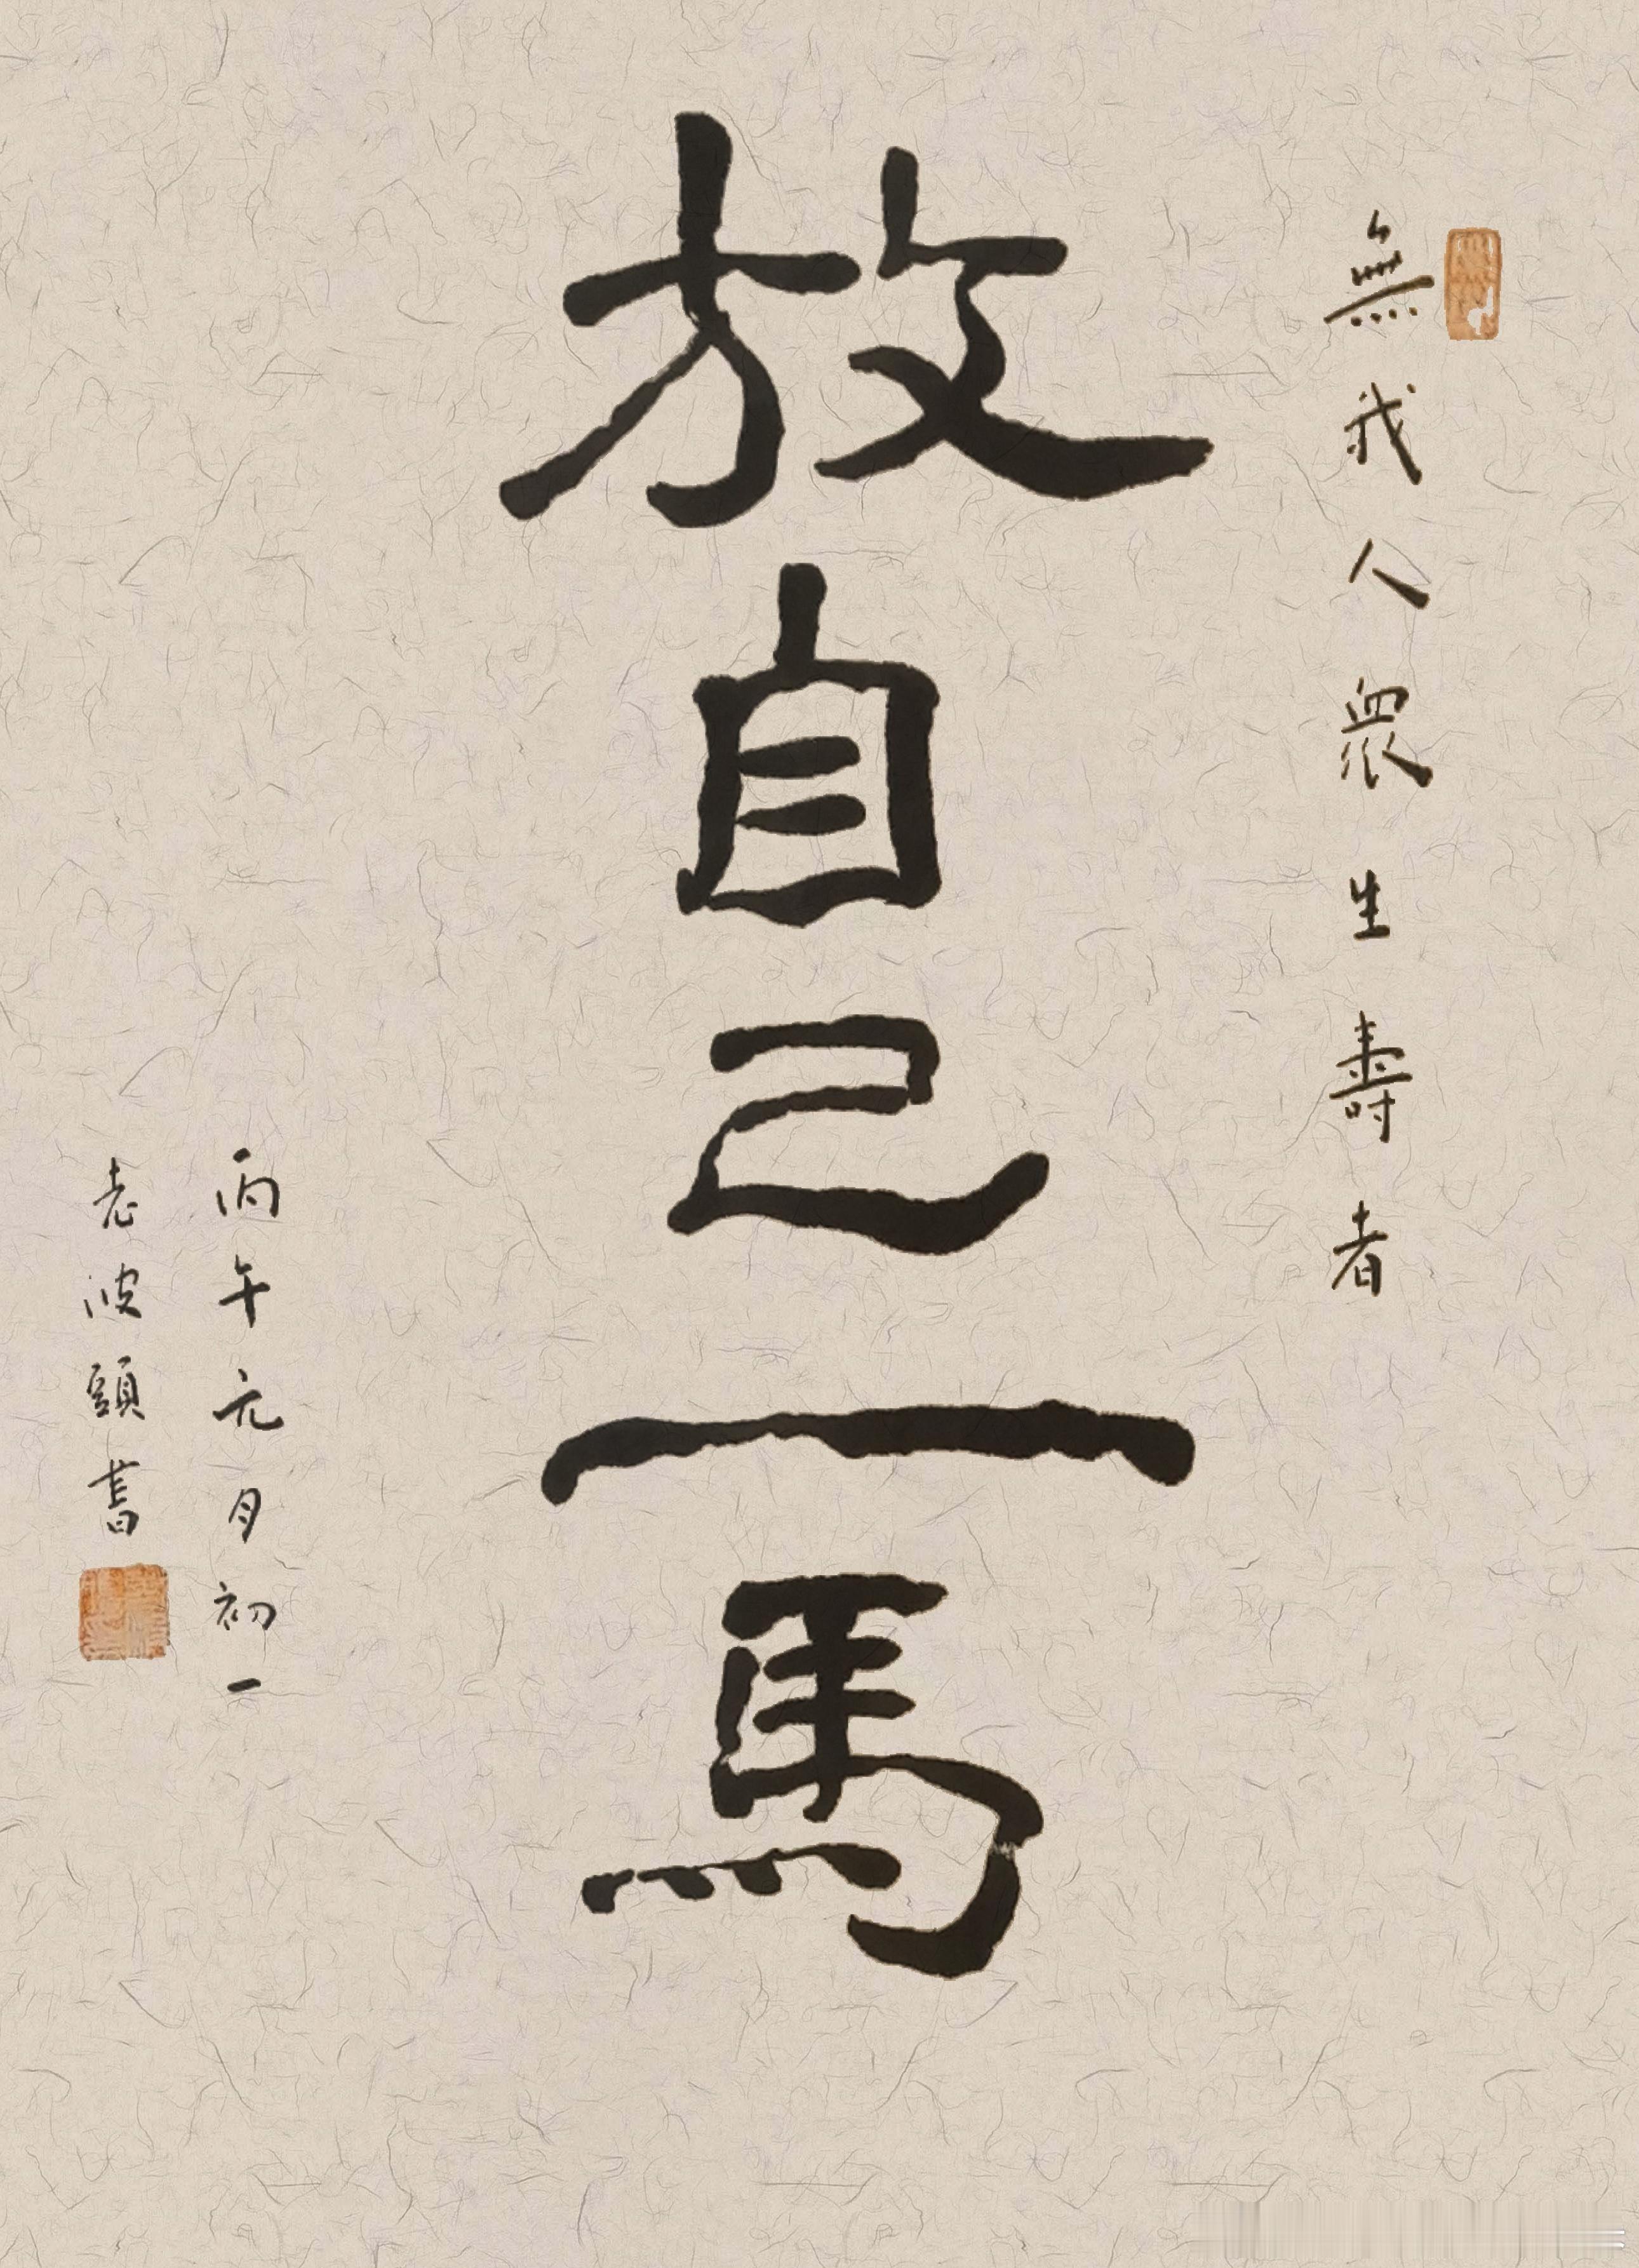 無我人眾生壽者
放自己一馬
丙午元月初一
老波頭書